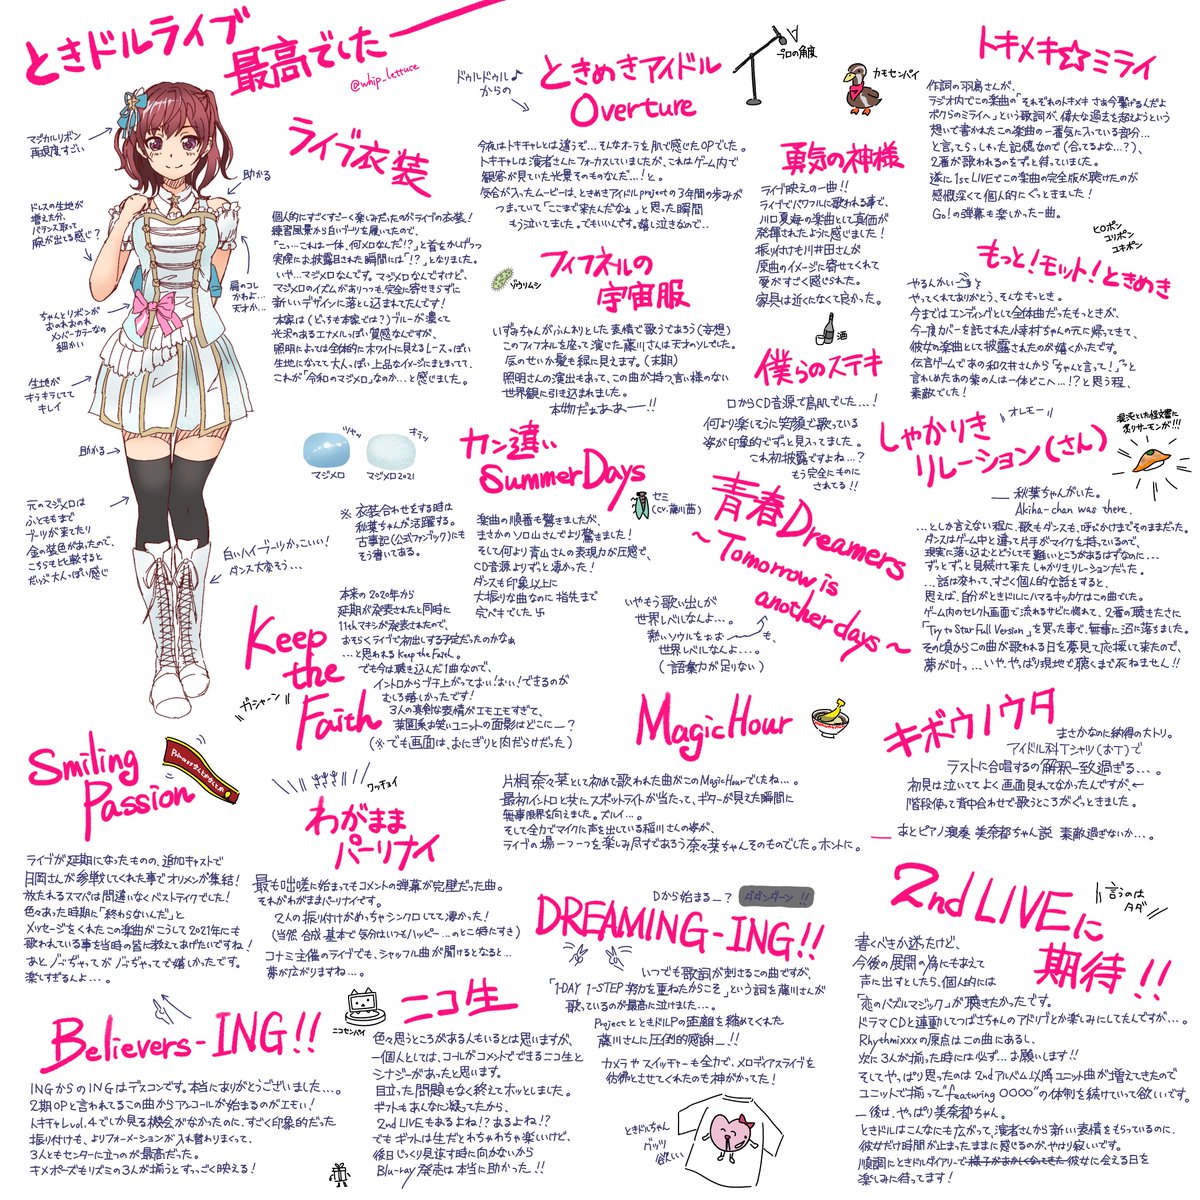 ときドルライブ
最高でした
@whip_lettuce
マジカルリボン
再現度すごい
助かる
ドレスの生地が
増えた分、
バランス取って
腕が出てる感じ?
肩のコレ
かわよ…
天才か…
ちゃんとリボンが
おのれおのれ
メンバーカラーなの
細かい
生地が
キラキラしてて
キレイ
助かる
元のマジメロは
ふとももまで
ブーツが来てたり
金の装色があったので、
こちらもと比較すると
だいぶ大人っぽい感じ
白いハイブーツかっこいい!
ダンス大変そう…
ライブ衣装
個人的にすごくすごーく楽しみだったのがライブの衣装!
練習風景から白いブーツを履いてたので、
「こぃ…これは一体、何メロなんだ!?」と首をかしげっつ
実際にお披露目された瞬間には「!?」となりました。
いや…マジメロなんです。マジメロなんですけど、
マジメロのイズムがありつつも、完全に寄せきらずに
新しいデザインに落とし込まれてたんです!
本家は(どっちも本家では?)ブルーが濃くて
光沢のあるエナメルっぽい質感なんですが、
照明によっては全体的にホワイトに見えるレースっぽい
生地になってて大人っぽい上品なイメージにまとまってて、
これが「令和のマジメロ」なのか…と感じました。
ツヤッ
マジメロ
キラッ
マジメロ2021
※衣装合わせをする時は
秋葉ちゃんが活躍する。
古事記(公式ファンブック)にも
そう書いてある。
ドゥルドゥル♪
からの
ときめきアイドル
Overture
プロの角度
今夜はトキチャレとは違うぞ…そんなオーラを肌で感じたOPでした。
トキチャレは演者さんにフォーカスしていましたが、これはゲーム内で
観客が見ていた光景そのものなんだ…!と。
気合が入ったムービーは、ときめきアイドルprojectの3年間の歩みが
つまっていて「ここまで来たんだなぁ」と思った瞬間
もう泣いてました。でもいいんです。嬉し泣きなので…
フイフネルの
宇宙服
ゾウリムシ
いずみちゃんがふんわりとした表情で歌うであろう(妄想)
このフイフネルを座って演じた藤川さんは天才のソレでした。
気のせいか髪も緑に見えます。(末期)
照明さんの演出もあって、この曲が持つ言い様のない
世界観に引き込まれました。
本物だぁああー!!
カモセンパイ
勇気の神様
ライブ映えの一曲!!
ライブでパワフルに歌われる事で、
川口夏海の楽曲として真価が
発揮されたように感じました!
振り付けも川井田さんが
原曲のイメージに寄せてくれて
愛がすごく感じられた。
家具は近くになくて良かった。
酒
僕らのステキ
口からCD音源で鳥肌でした…!
何より楽しそうに笑顔で歌っている
姿が印象的でずっと見入ってました。
これ初披露ですよね…?
もう完全にものに
されてる!!
トキメキ☆ミライ
作詞の羽鳥さんが、
ラジオ内でこの楽曲の「それぞれのトキメキ さあ今繋げるんだよ
ボクらのミライへ」という歌詞が、偉大な過去を超えようという
想いで書かれたこの楽曲の一番気に入っている部分…
と言ってらっしゃった記憶なので(合ってるよな…?)、
2番が歌われるのをずっと待っていました。
遂に1st LIVEでこの楽曲の完全版が聴けたのが
感慨深くて個人的にぐっときました!
Go!の弾幕も楽しかった一曲。
ヒロポン
ユリポン
ユキポン
もっと!モット!ときめき
やるんかい…
やってくれてありがとう、そんなもっとき。
今まではエンディングとして全体曲だったもっときが、
今一度カバーを託された小峠村ちゃんの元に帰ってきて、
彼女の楽曲として披露されたのが嬉しかったです。
伝言ゲームであの和久井さんから「ちゃんと言って!」っと
言わしめたあの柴の人は一体どこへ…!?と思う程、
素敵でした!
しゃかりき
リレーション(さん)
オレモー
混沌とした怪文書に
炙りサーモンが!!!
秋葉ちゃんがいた。
Akiha-chan was there.
…としか言えない程に、歌もダンスも、呼びかけまでそのままだった。
ダンスはゲーム中と違って片手がマイクを持っているので、
現実に落とし込むとどうしても難しいところがあるはずなのに…
ずっとずっと見続けて来たしゃかりきリレーションだった。
…話は変わって、すごく個人的な話をすると、
思えば、自分がときドルにハマるキッカケはこの曲でした。
ゲーム内のセレクト画面で流れるサビに惚れて、2番の聴きたさに
「Try to Star Full Version」を買った事で、無事に沼に落ちました。
その頃からこの曲が歌われる日を夢見て応援して来たので、
夢が叶っ…いや、やっぱり現地で聴くまで死ねません!!
カン違い
Summer Days
セミ
(cv.藤川茜)
楽曲の順番も驚きましたが、
まさかのソロ山さんでより驚きました!
そして何より青山さんの表現力が圧感で、
CD音源よりずっと凄かった!
ダンスも印象以上に
大振りな曲なのに指先まで
完ペキでした卐
青春Dreamers
～Tomorrow is
another days～
いやもう歌い出しが
世界レベルなんよ…。
熱いソウルをぉぉ〜も、
世界レベルなんよ…。
(語彙力が足りない)
Keep
the
Faith
本来の2020年から
延期が発表されたと同時に
11thマキシが発表されたので、
おそらくライブで初出しする予定だったのかなぁ
…と思われるKeep the Faith。
でも今は聴き込んだ1曲なので、
イントロからブチ上がっておい!おい!できるのが
むしろ嬉しかったです!
3人の真剣な表情がエモエモすぎて、
菜園系お笑いユニットの面影はどこに—?
(※でも画面は、おにぎりと肉だらけだった)
ガシャーン
Magic Hour
片桐奈々菜として初めて歌われた曲がこのMagic Hourでしたね…。
最初イントロと共にスポットライトが当たって、ギターが見えた瞬間に
無事限界を向えました。ズルイ…。
そして全力でマイクに声を出している稲川さんの姿が、
ライブの場一つ一つを楽しみ尽すであろう奈々菜ちゃんそのものでした。ホントに。
キボウノウタ
まさかなのに納得のトリ。
アイドル科Tシャツ(おT)で
ラストに合唱するの解釈一致過ぎる…。
初見は泣いててよく画面見れてなかったんですが、←
階段使って背中合わせで歌うところがぐっときました。
あとピアノ演奏 美奈都ちゃん説 素敵過ぎないか…。
Smiling
Passion
ライブが延期になったものの、追加キャストで
日岡さんが参戦してくれた事でオリメンが集結!
放たれるスマパは間違いなくベストテイクでした!
色々あった時期に「終わらないんだ」と
メッセージをくれたこの楽曲がこうして2021年にも
歌われている事を当時の皆に教えてあげたいですね!
あとノっちゃってがノっちゃってで嬉しかったです。
楽しすぎるんよ…。
ワッチョイ
わがまま
パーリナイ
最も咄嗟に始まってもコメントの弾幕が完璧だった曲。
それがわがままパーリナイです。
2人の振り付けがめっちゃシンクロしてて凄かった!
(当然 合成 基本で気分はいつもハッピー…のとこ特にすき)
コナミ主催のライブでも、シャッフル曲が聞けるとなると…
夢が広がりますね…。
Dから始まる…?
ダダンダーン!!
DREAMING-ING!!
いつでも歌詞が刺さるこの曲ですが、
「1-DAY 1-STEP 努力を重ねたからこそ」という詞を藤川さんが
歌っているのが最高に泣けました…。
ProjectとときドルPの距離を縮めてくれた
藤川さんに圧倒的感謝—!!
カメラやスイッチャーも全力で、メロディアスライブを
彷彿とさせてくれたのも神がかってた!
ときドルちゃん
グッズ
欲しい
Believers-ING!!
INGからのINGはデスコンです。本当にありがとうございました…。
2期OPと言われてるこの曲からアンコールが始まるのがエモい!
トキチャレvol.4でしか見る機会がなかったのに、すごく印象的だった
振り付けも、よりフォーメーションが入れ替わりまくって、
3人ともセンターに立つのが最高だった。
キメポーズもリズミの3人が揃うとすっごく映える!
ニコセンパイ
ニコ生
色々思うところがある人もいるとは思いますが、
一個人としては、コールがコメントでできるニコ生と
シナジーがあったと思います。
目立った問題もなく終えてホッとしました。
ギフトもあんなに凝ってたから、
2nd LIVEもあるよね!?あるよね!?
でもギフトは生だとわちゃわちゃ楽しいけど、
後日じっくり見返す時に向かないから
Blu-ray発売は本当に助かった!!
2nd LIVEに
期待!!
言うのは
タダ
書くべきか迷ったけど、
今後の展開の為にもあえて
声に出すとしたら、個人的には
「恋のパズルマジック」が聴きたかったです。
ドラマCDと連動してつばさちゃんのアドリブとか楽しみにしてたんですが…。
Rhythmixxxの原点はこの曲にあるし、
次に3人が揃った時には必ず…お願いします!!
そしてやっぱり思ったのは2ndアルバム以降ユニット曲が増えてきたので
ユニットで揃って"featuring ○○○○"の体制を続けていって欲しいです。
一後は、やっぱり美奈都ちゃん。
ときドルはこんなにも広がって、演者さんから新しい表情をもらっているのに、
彼女だけ時間が止まったままに感じるのが、やはり寂しいです。
順調にときドルダイアリーで様子がおかしくなってきた彼女に会える日を
楽しみに待ってます!